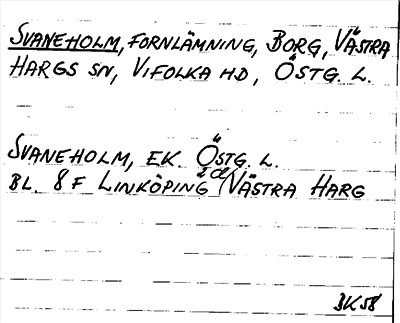 SVANEHOLM, FORNLÄMNING, BORG, VÄSTRA
HARGS SN, VIFOLKA HD, ÖSTG. L.
SVANEHOLM, EK. ÖSTG. L.
BL. 8 F LINKÖPING 2 d (VÄSTRA HARG
BK58